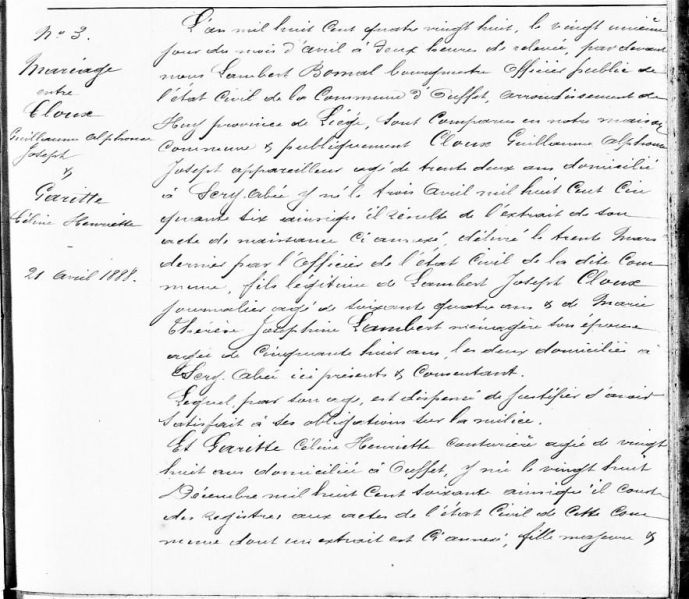 N° 3.
Mariage
entre
Cloux
Guillaume Alphonse
Joseph
&
Garitte
Céline Henriette
21 Avril 1888.
L'an mil huit Cent quatre vingt huit, le vingt unième
jour du mois d'avril à deux heures de relevée, pardevant
nous Lambert Bonsal bourgmestre Officier public de
l'état Civil de la Commune d'Ouffet, arrondissement de
Huy province de Liége, Sont Comparus en notre maison
Commune & publiquement Cloux Guillaume Alphonse
Joseph appareilleur agé de trente deux ans domicilié
à Scry. Abée y né le trois Avril mil huit Cent Cin
quante six ainsi qu'il résulte de l'extrait de son
acte de naissance Ci annexé, délivré le trente Mars
dernier par l'Officier de l'état Civil de la dite Com
mune, fils légitime de Lambert Joseph Cloux
journalier agé de soixante quatre ans & de Marie
Thérèse Joséphine Lambert ménagère son épouse
agée de Cinquante huit ans, les deux domiciliés à
Scry. Abée ici présents & Consentant.
Lequel, par son age, est dispensé de justifier d'avoir
satisfait à ses obligations sur la milice.
Et Garitte Céline Henriette couturière agée de vingt
huit ans domiciliée à Ouffet, y née le vingt huit
Décembre mil huit Cent soixante ainsi qu'il conste
des registres aux actes de l'état Civil de Cette Com
mune dont un extrait est Ci annexé, fille majeure &